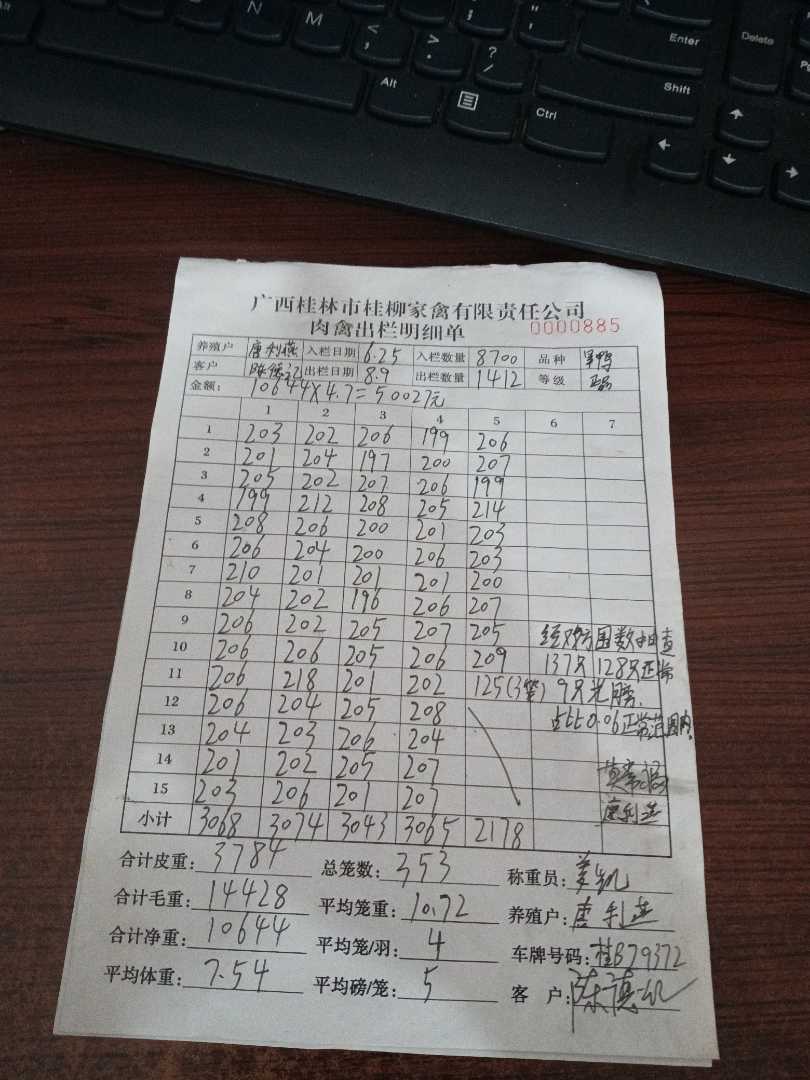 End
N
M
<
,
>
.
?
/
"
'
Enter
Delete
Alt
Ctrl
Shift
广西桂林市桂柳家禽有限责任公司
肉禽出栏明细单 0000885
养殖户 唐利燕 入栏日期 6.25 入栏数量 8700 品种
客户 陈德记 出栏日期 8.9 出栏数量 1412 等级
金额: 10644×4.7=50027元
1 2 3 4 5 6 7
1 203 202 206 199 206
2 201 204 197 200 207
3 205 202 207 206 199
4 199 212 208 205 214
5 208 206 200 201 203
6 206 204 200 206 203
7 210 201 201 201 200
8 204 202 196 206 207
9 206 202 205 207 205 经对方图数抽查
10 206 206 205 206 209 137只 128只正常
11 206 218 201 202 125(3笼) 9只光膀.
12 206 204 205 208 占比0.06正常范围内.
13 204 203 206 204
14 201 202 205 207
15 203 206 201 207 唐利燕
小计 3068 3074 3043 3065 2178
合计皮重: 3784 总笼数: 353 称重员: 姜凯
合计毛重: 14428 平均笼重: 10.72 养殖户: 唐利燕
合计净重: 10644 平均笼/羽: 4 车牌号码: 桂B79372
平均体重: 7.54 平均磅/笼: 5 客 户: 陈德记